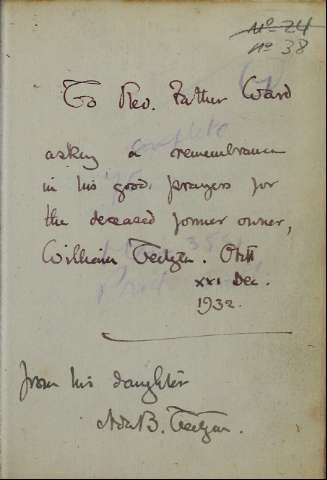 Nº 24
nº 38
To Rev. Father Ward
complete
asking a remembrance
in his good prayers for
the deceased former owner,
William Obiit
xxi Dec.
1932.
from his daughter
Ada B.